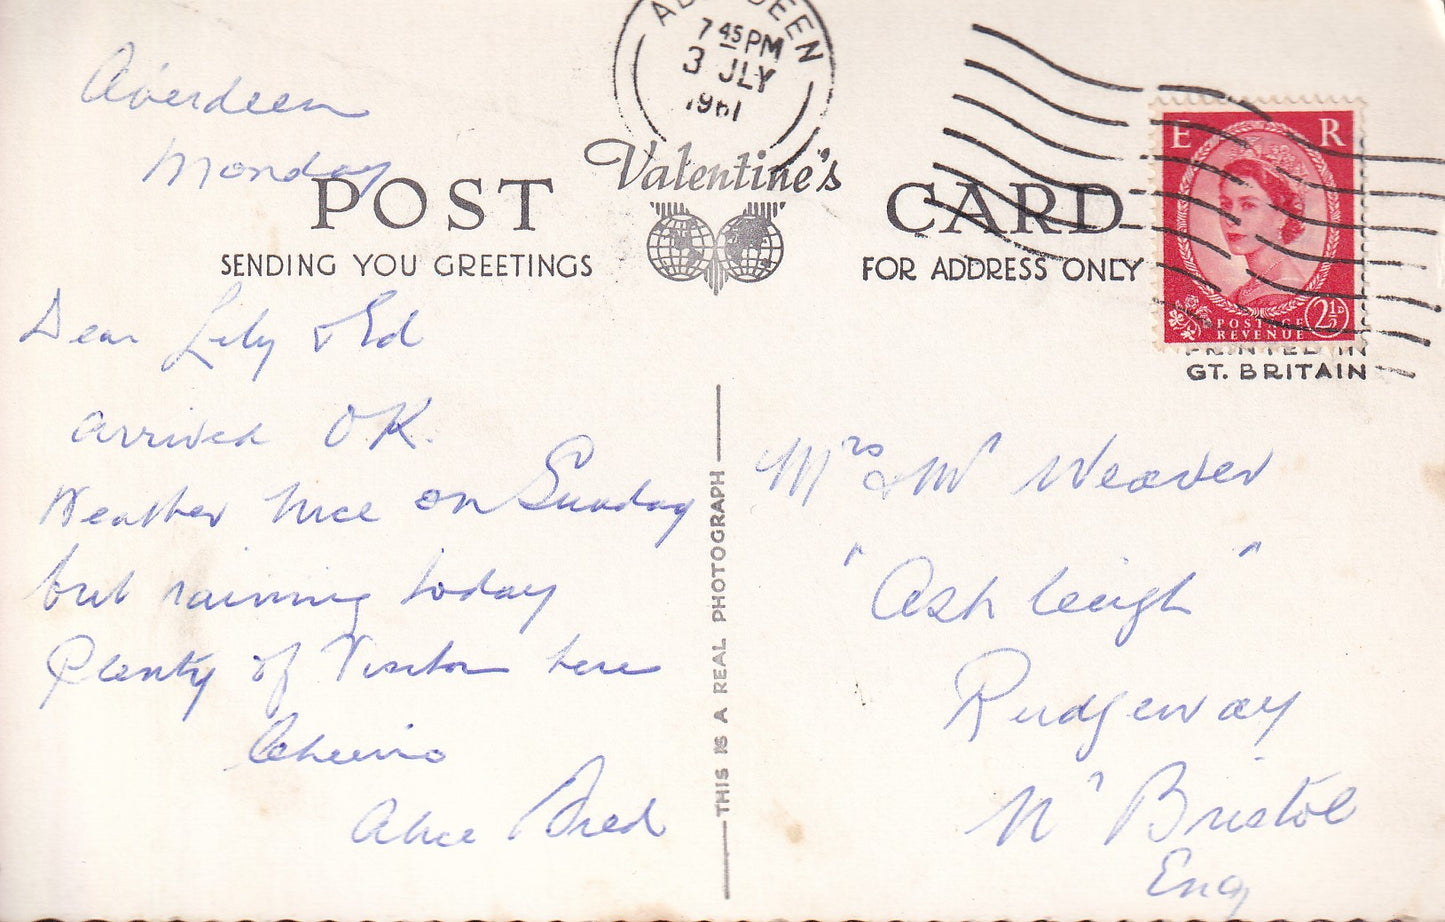 ABERDEEN
7 45 PM
3 JLY
1961
Aberdeen
Monday
POST
Valentine's
CARD
SENDING YOU GREETINGS
FOR ADDRESS ONLY
E R
POSTAGE
REVENUE
2½D
PRINTED IN
GT. BRITAIN
Dear Lily & Ed
arrived OK.
Weather nice on Sunday
but raining today
Plenty of Visitors here
Cheerio
Alice
THIS IS A REAL PHOTOGRAPH
Mrs & Mr Weaver
"Ashleigh"
Rudgeway
Nr Bristol
Eng